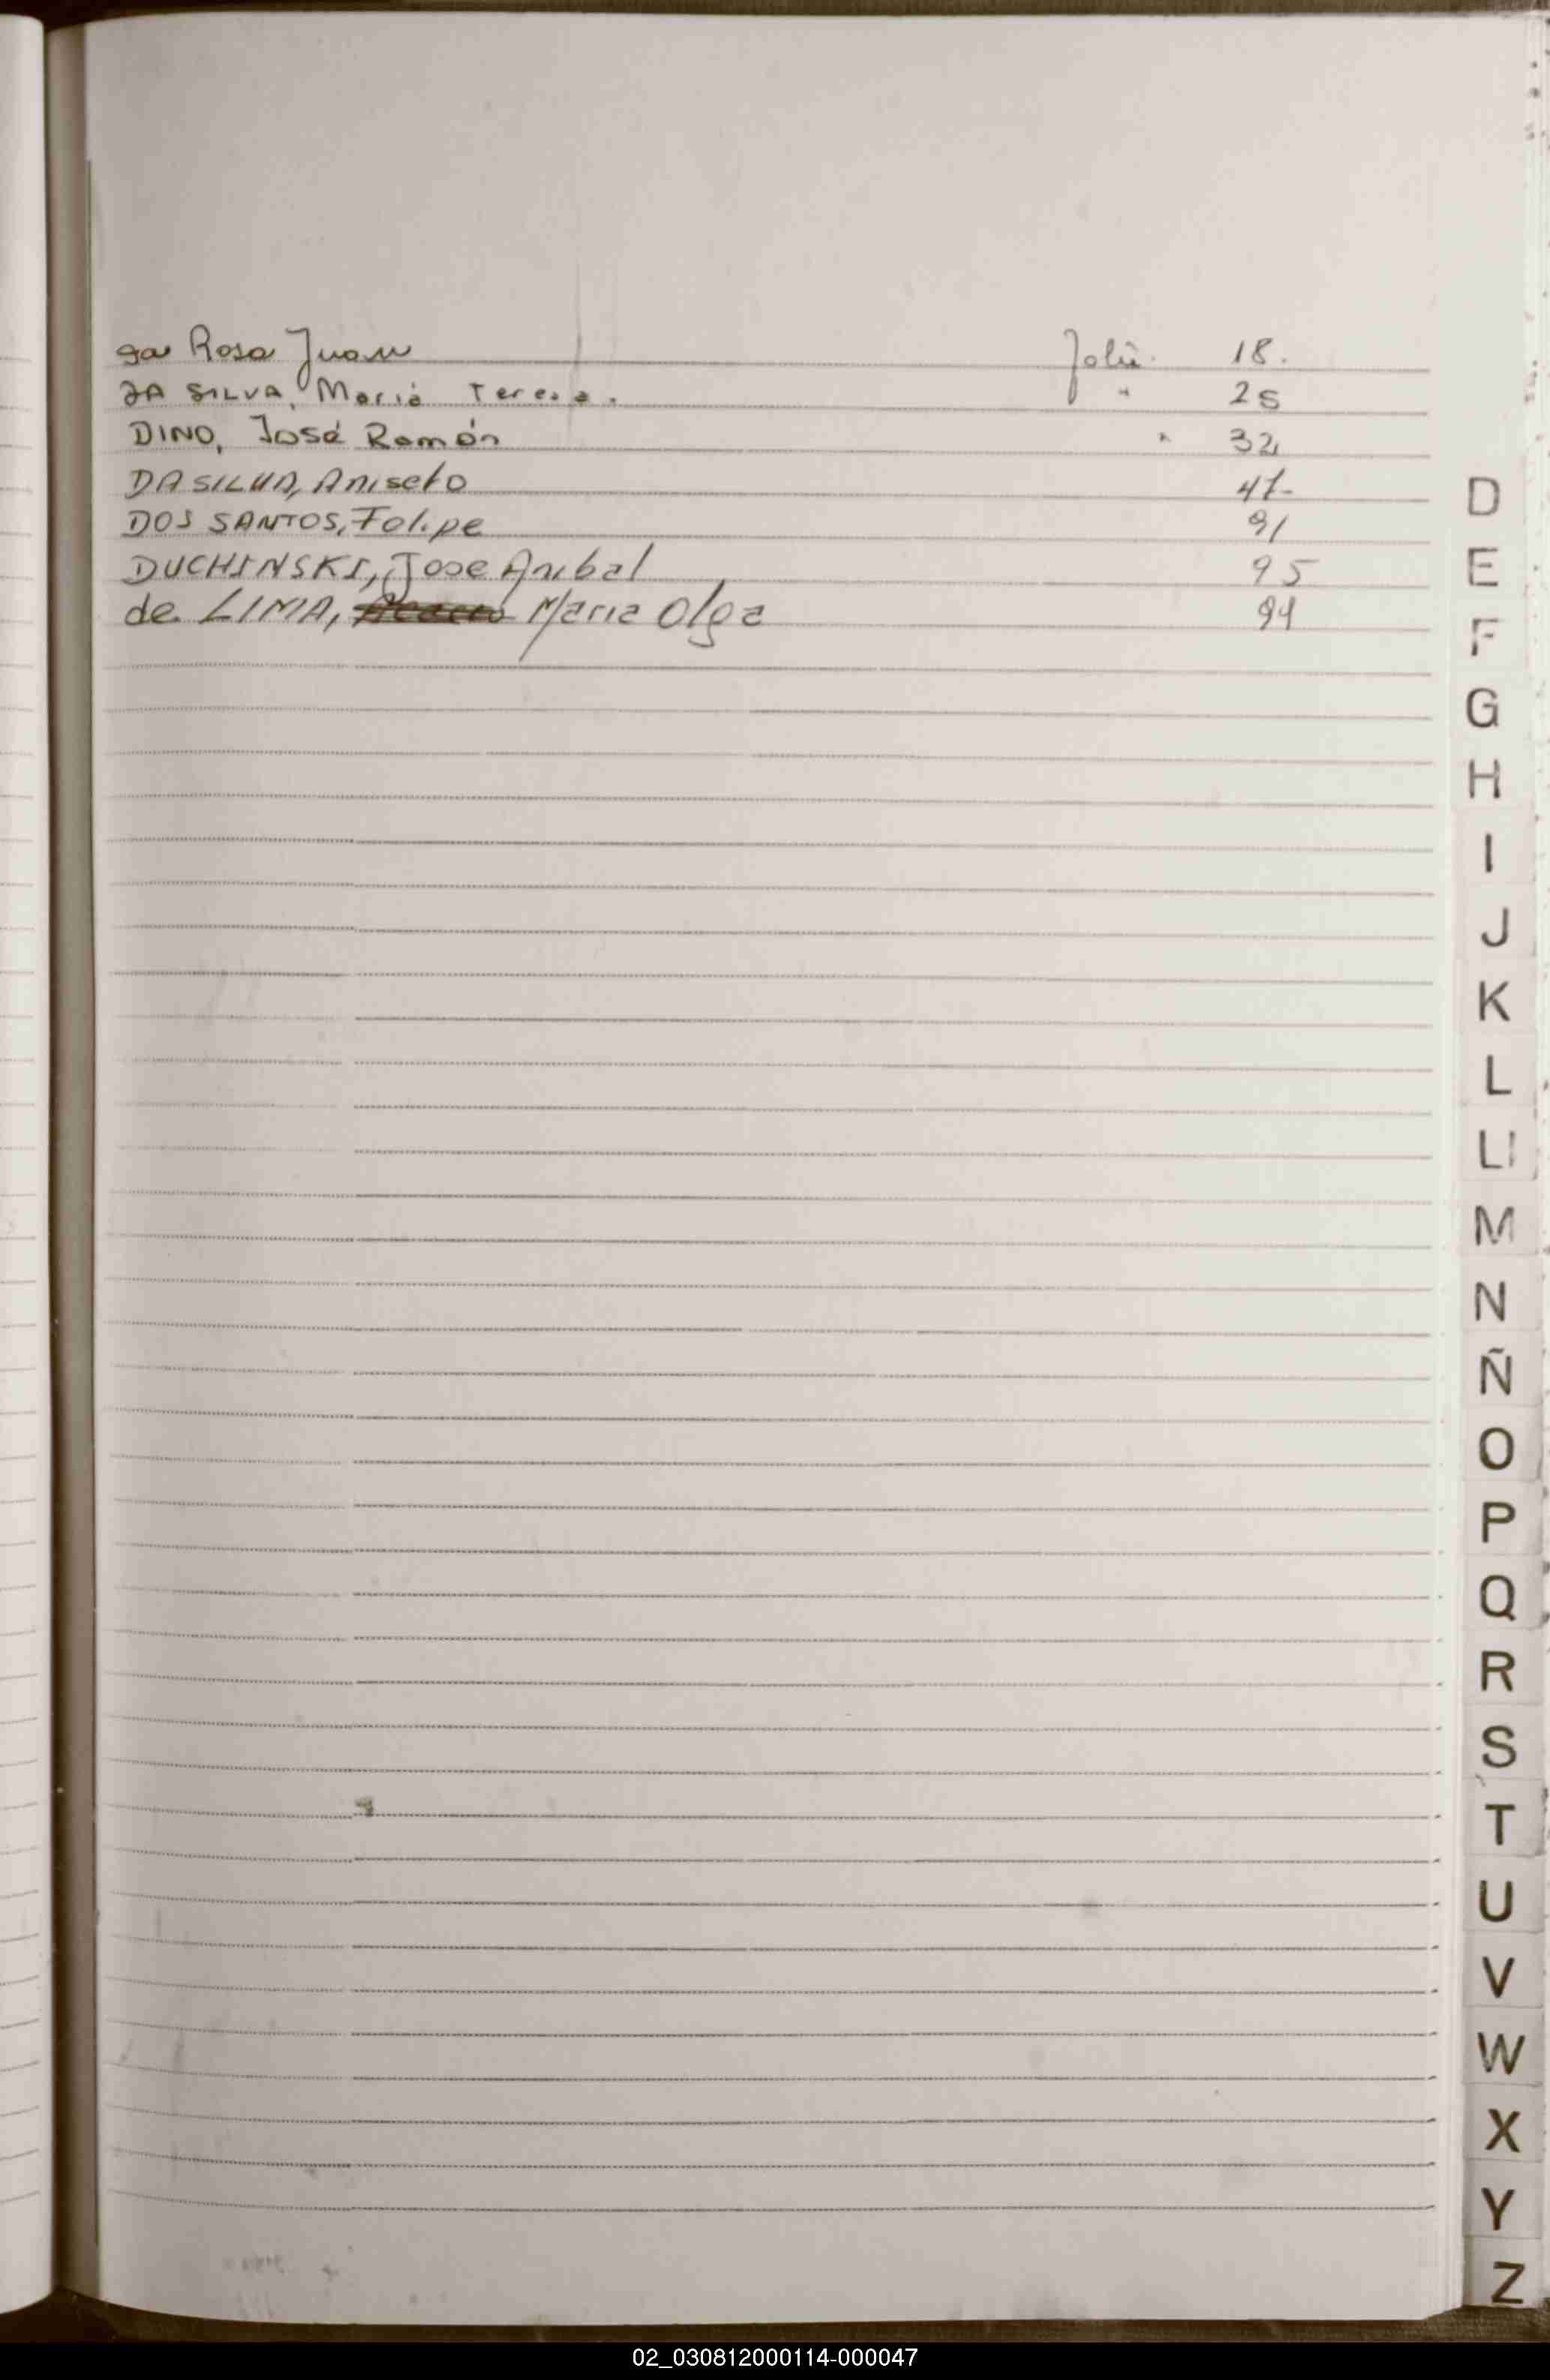 da Rosa Juan Folio 18.
DA SILVA, Maria Teresa. " 25
DINO, José Ramón " 32
DA SILVA, Aniseto 41-
DOS SANTOS, Felipe 91
DUCHINSKI, Jose Anibal 95
de LIMA, Maria Olga 94
D
E
F
G
H
I
J
K
L
Ll
M
N
Ñ
O
P
Q
R
S
T
U
V
W
X
Y
Z
02_030812000114-000047